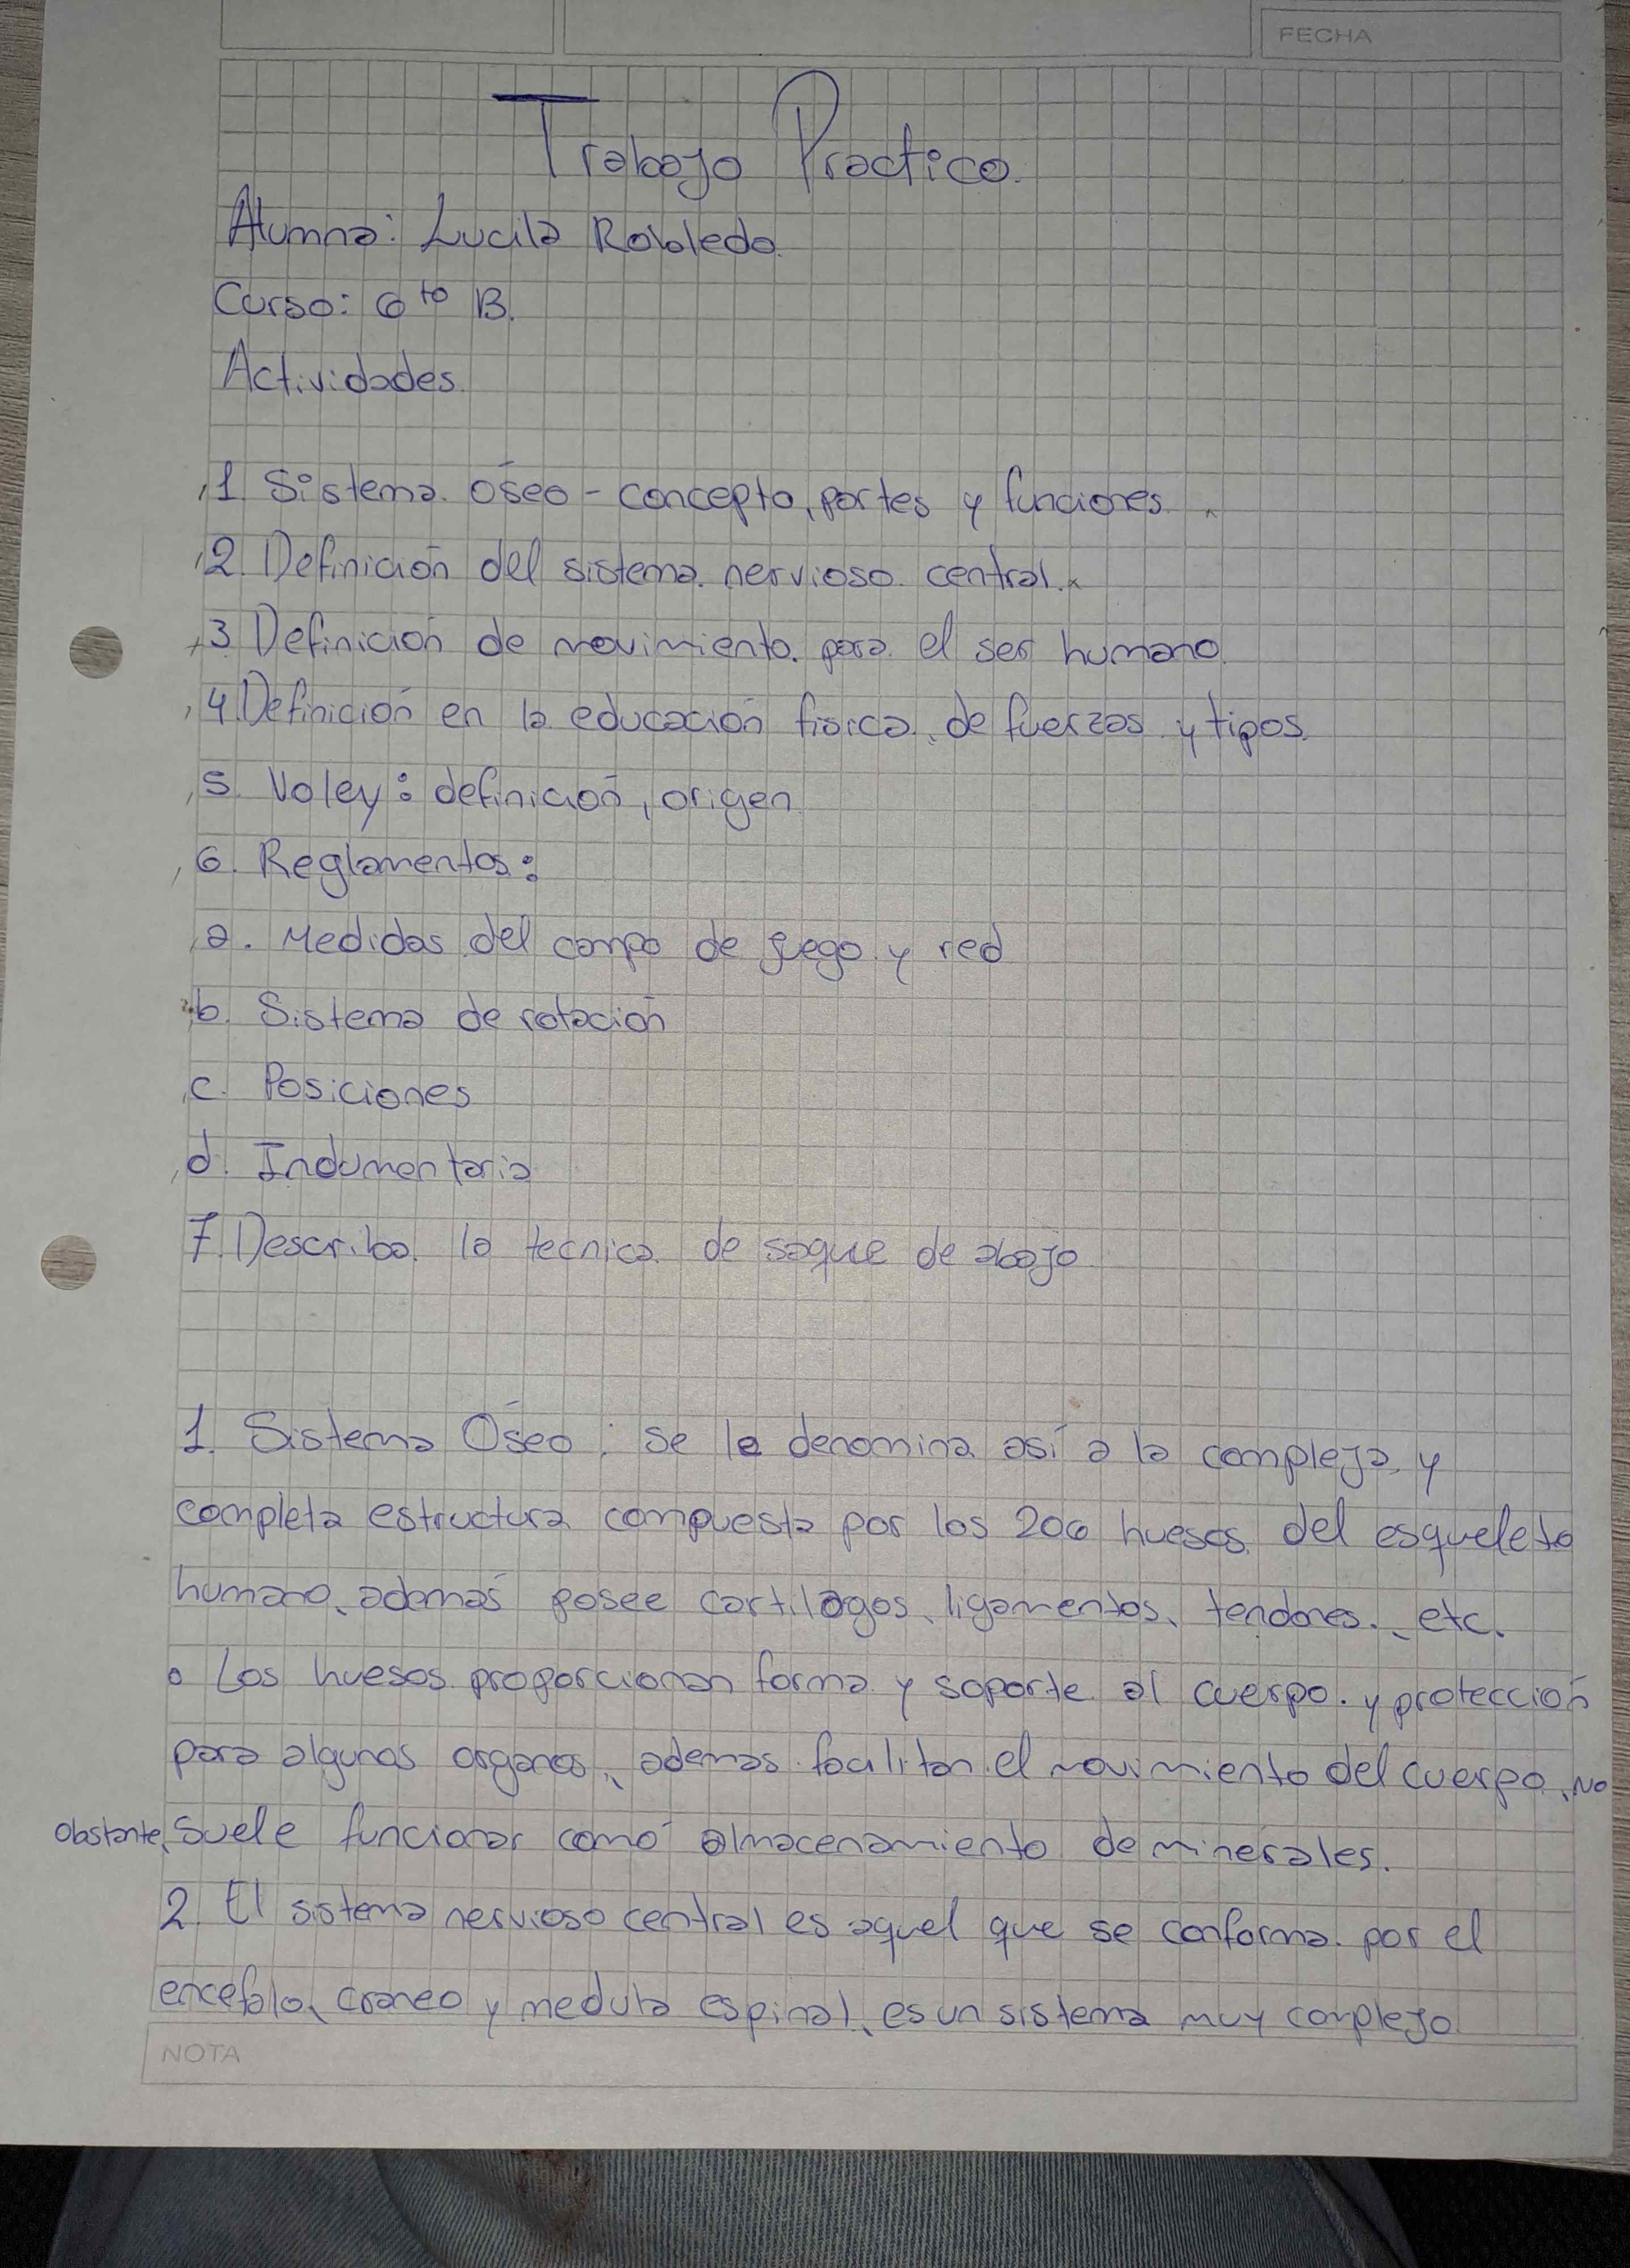 FECHA
Trabajo Practico.
Alumna: Lucila Robledo.
Curso: 6to B.
Actividades.
1 Sistema Óseo - concepto, partes y funciones.
2. Definición del sistema nervioso central.
3 Definición de movimiento para el ser humano.
4. Definición en la educación física, de fuerzas y tipos.
5. Voley: definición, origen.
6. Reglamentos:
a. Medidas del campo de juego y red
b. Sistema de rotación
c. Posiciones
d. Indumentaria
7. Describa la tecnica de saque de abajo
1. Sistema Óseo: se le denomina así a la compleja y
completa estructura compuesta por los 206 huesos del esqueleto
humano, además posee cartilagos, ligamentos, tendones., etc.
• Los huesos proporcionan forma y soporte al cuerpo. y protección
para algunos organos, ademas facilitan el movimiento del cuerpo, No
obstante, suele funcionar comó almacenamiento de minerales.
2. El sistema nervioso central es aquel que se conforma por el
encefalo, craneo y medula espinal, es un sistema muy complejo
NOTA